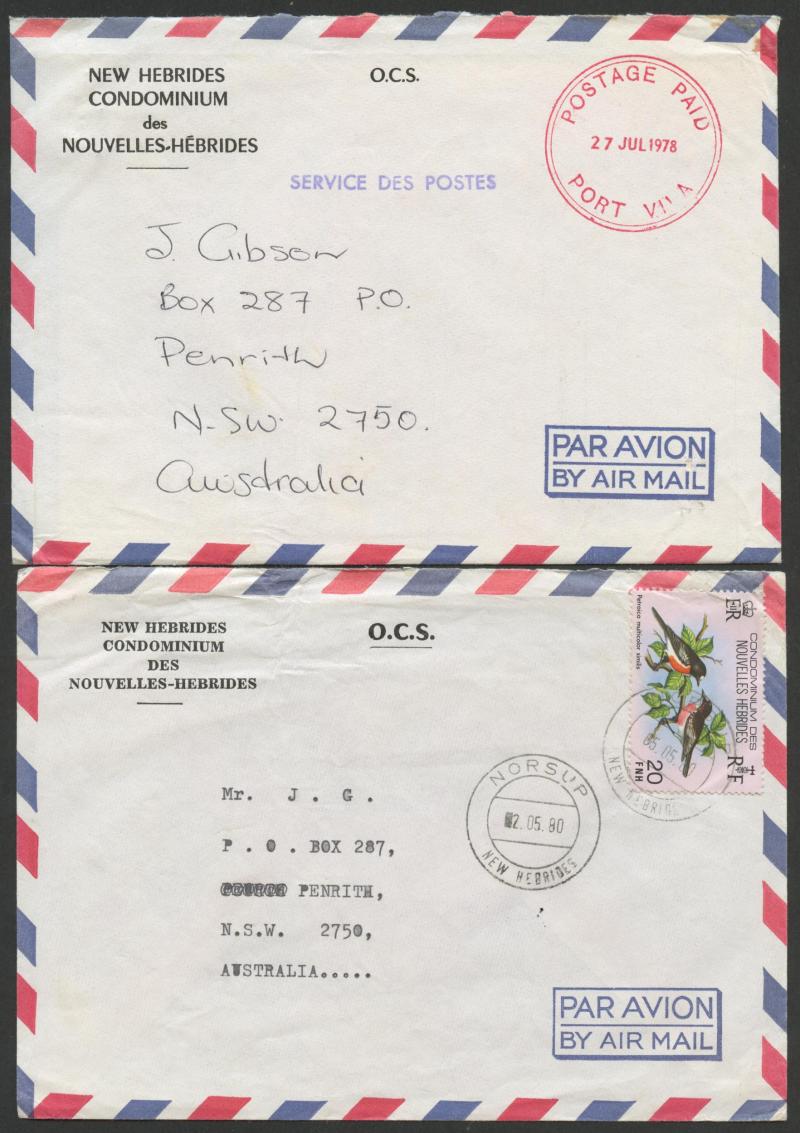 NEW HEBRIDES
CONDOMINIUM
des
NOUVELLES-HÉBRIDES
O.C.S.
POSTAGE PAID
27 JUL 1978
PORT VILA
SERVICE DES POSTES
J. Gibson
Box 287 P.O.
Penrith
N.SW. 2750.
Australia
PAR AVION
BY AIR MAIL
NEW HEBRIDES
CONDOMINIUM
DES
NOUVELLES-HEBRIDES
O.C.S.
Petroica multicolor similis
EIIR
CONDOMINIUM DES
NOUVELLES HEBRIDES
RF
20
FNH
05.
NEW HEBRIDE
NORSUP
2.05.80
NEW HEBRIDES
Mr. J. G.
P. O. BOX 287,
PENRITH,
N.S.W. 2750,
AUSTRALIA.....
PAR AVION
BY AIR MAIL